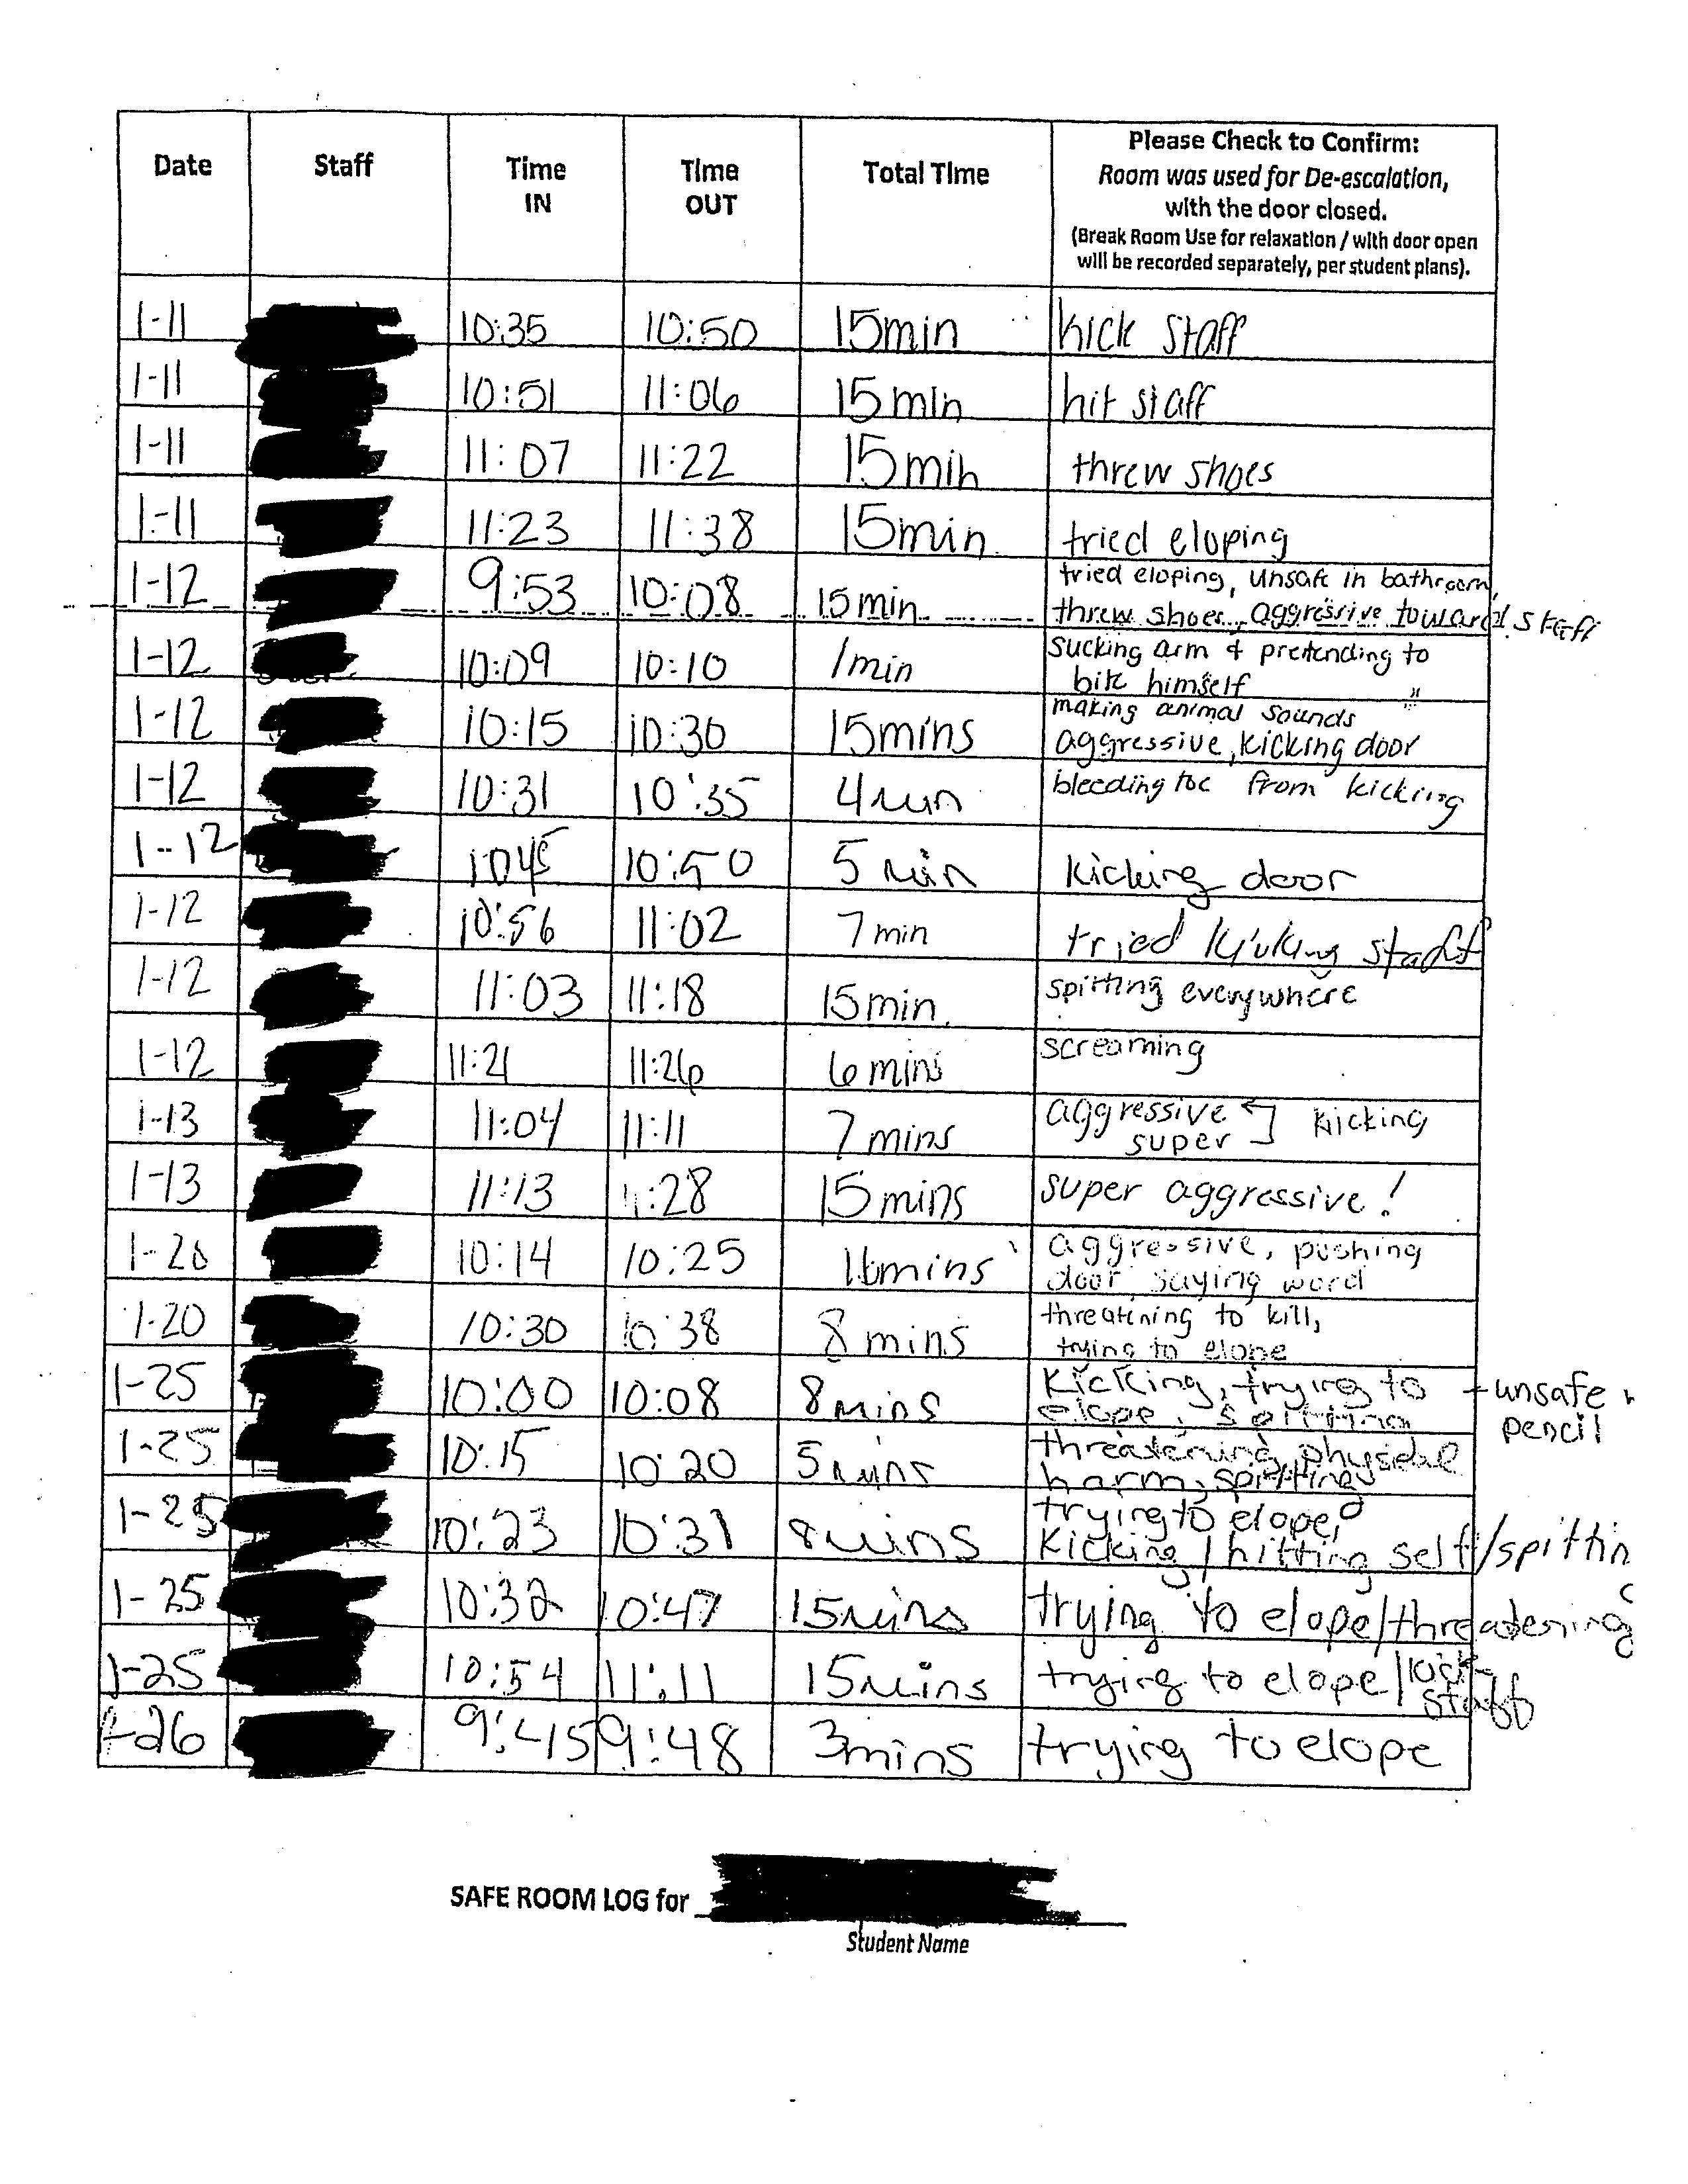 Date Staff Time IN Time OUT Total Time Please Check to Confirm:
Room was used for De-escalation,
with the door closed.
(Break Room Use for relaxation / with door open
will be recorded separately, per student plans).
1-11 10:35 10:50 15min kick staff
1-11 10:51 11:06 15min hit staff
1-11 11:07 11:22 15min threw shoes
1-11 11:23 11:38 15min tried eloping
1-12 9:53 10:08 15min tried eloping, unsafe in bathroom,
threw shoes, aggressive toward staff
1-12 10:09 10:10 1min sucking arm & pretending to
bite himself
1-12 10:15 10:30 15mins making animal sounds
aggressive, kicking door
1-12 10:31 10:35 4 min bleeding toe from kicking
1-12 1045 10:50 5 min kicking door
1-12 10:56 11:02 7 min tried kicking staff
1-12 11:03 11:18 15min. spitting everywhere
1-12 11:21 11:26 6 mins screaming
1-13 11:04 11:11 7 mins aggressive kicking
super
1-13 11:13 11:28 15mins super aggressive!
1-20 10:14 10:25 mins aggressive, pushing
door, saying word
1-20 10:30 10:38 8 mins threatening to kill,
trying to elope
1-25 10:00 10:08 8mins kicking, trying to - unsafe
elope, spitting pencil
1-25 10:15 10:20 5 mins threatening physical
harm, spitting
1-25 10:23 10:31 8mins trying to elope,
kicking/hitting self/spittin
1-25 10:32 10:47 15mins trying to elope/threatening
1-25 10:54 11:11 15mins trying to elope/kick
staff
1-26 9:45 9:48 3mins trying to elope
SAFE ROOM LOG for
Student Name